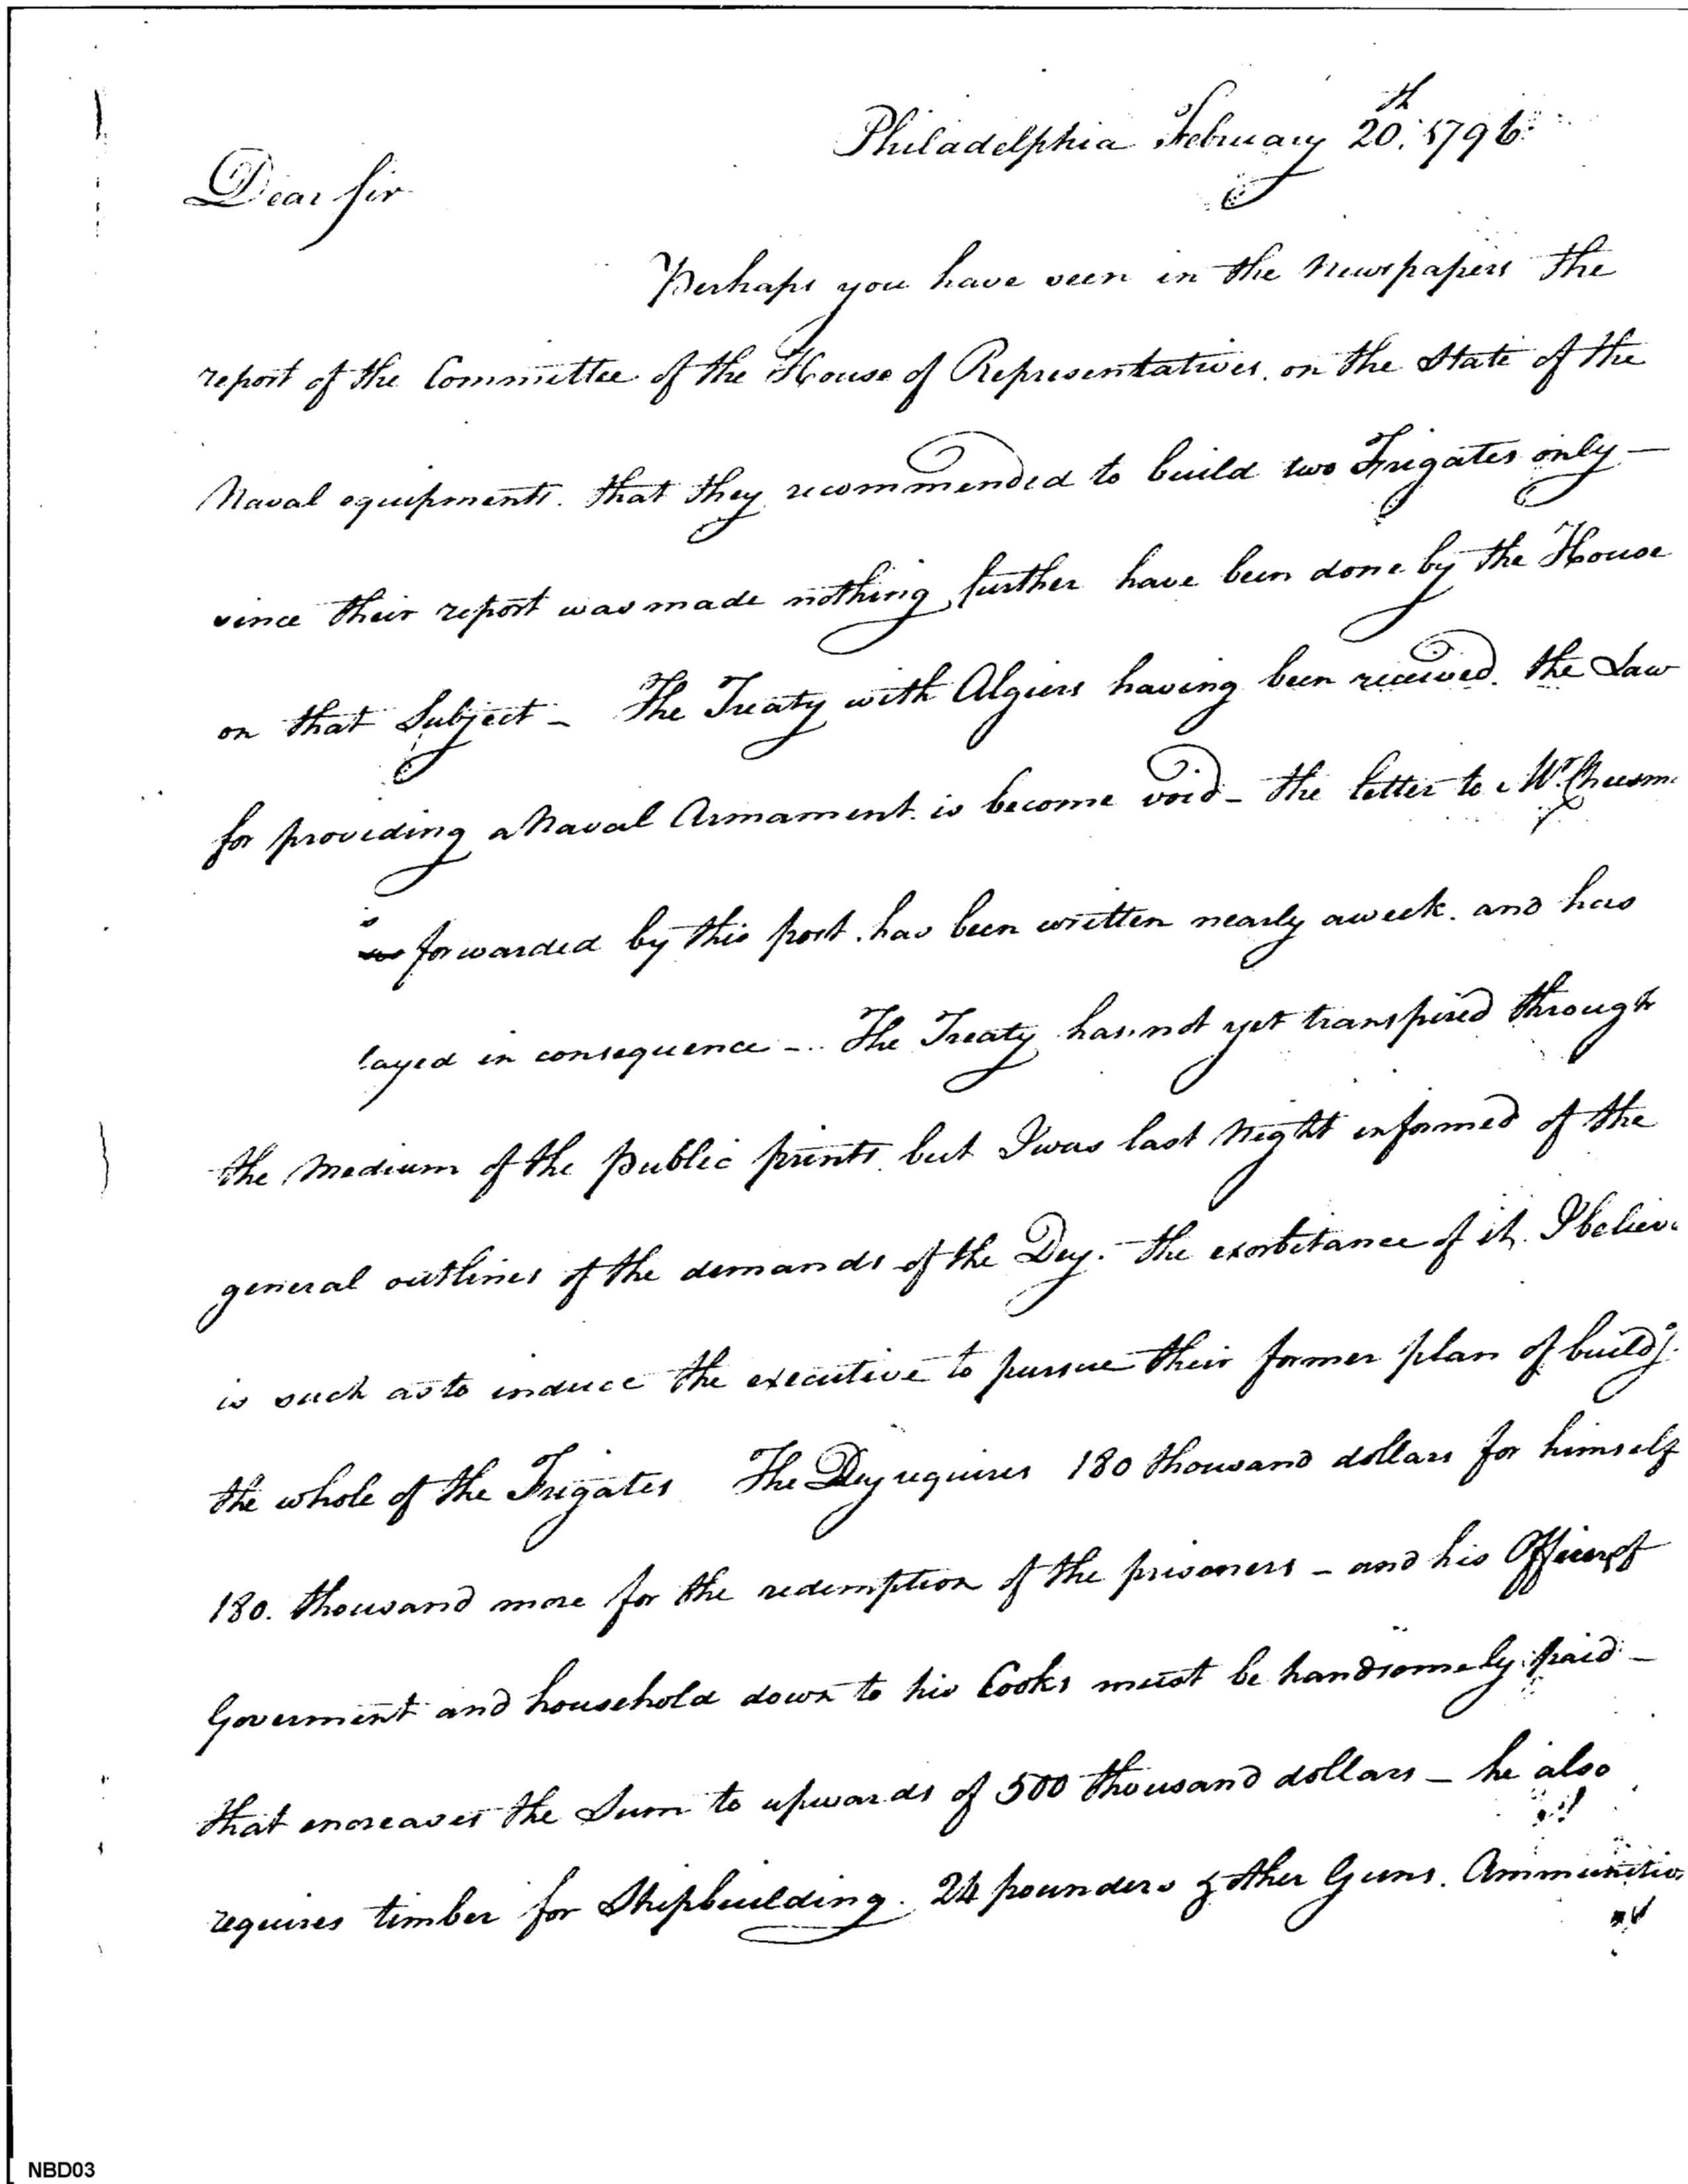 Philadelphia February 20th. 1796
Dear Sir
Perhaps you have seen in the Newspapers the
report of the Committee of the House of Representatives. on the State of the
Naval equipments. that they recommended to build two Frigates only —
since their report was made nothing further have been done by the House
on that Subject — The Treaty with Algiers having been received. the Law
for providing a Naval Armament. is become void — the letter to Mr.
is forwarded by this post. has been written nearly a week. and has
layed in consequence — The Treaty has not yet transpired through
the Medium of the public prints. but I was last Night informed of the
general outlines of the demands of the Dey. the exorbitance of it. I believe
is such as to induce the executive to pursue their former plan of buildg.
the whole of the Frigates The Dey requires 180 thousand dollars for himself
180. thousand more for the redemption of the prisoners — and his Officers of
Goverment and household down to his Cooks must be handsomely paid —
that encreases the Sum to upwards of 500 thousand dollars — he also
requires timber for Shipbuilding. 24 pounders & other Guns. Ammunitio
NBD03